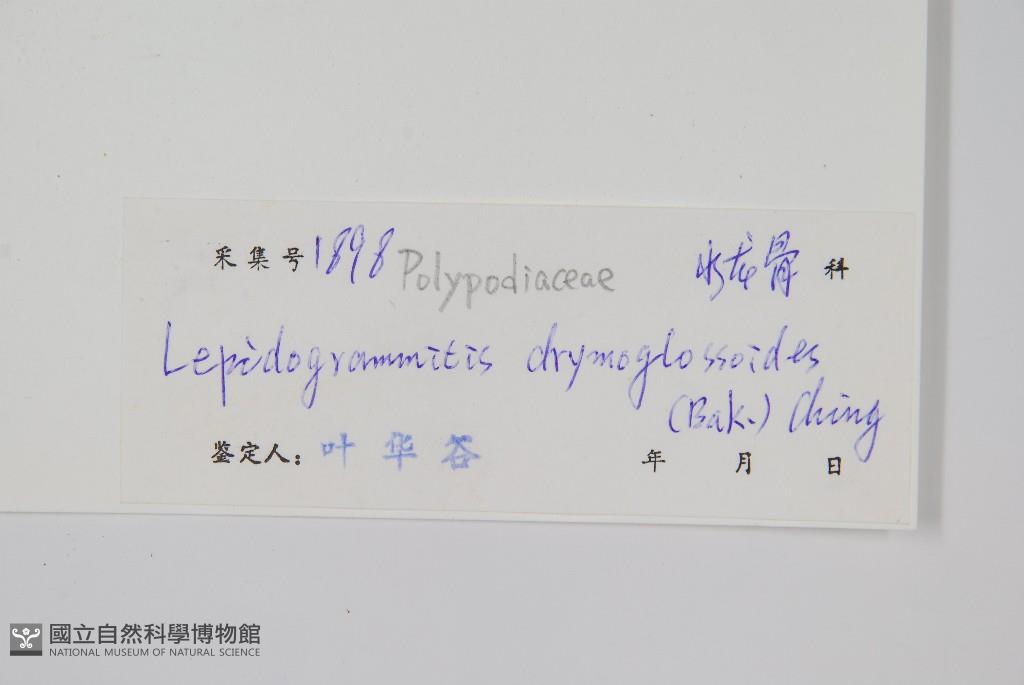 采集号 1898 Polypodiaceae 水龙骨 科
Lepidogrammitis drymoglossoides
(Bak.) Ching
鉴定人: 叶华谷 年 月 日
國立自然科學博物館
NATIONAL MUSEUM OF NATURAL SCIENCE